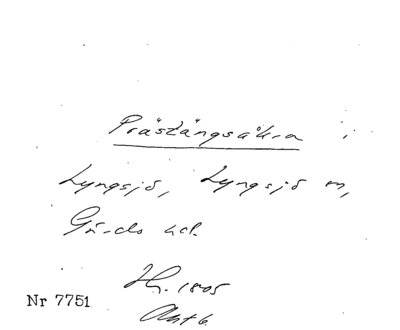 Prästängsåkra i
Lyngsjö, Lyngsjö sn,
Gärds hd.
H. 1805
Nr 7751
Akt 6